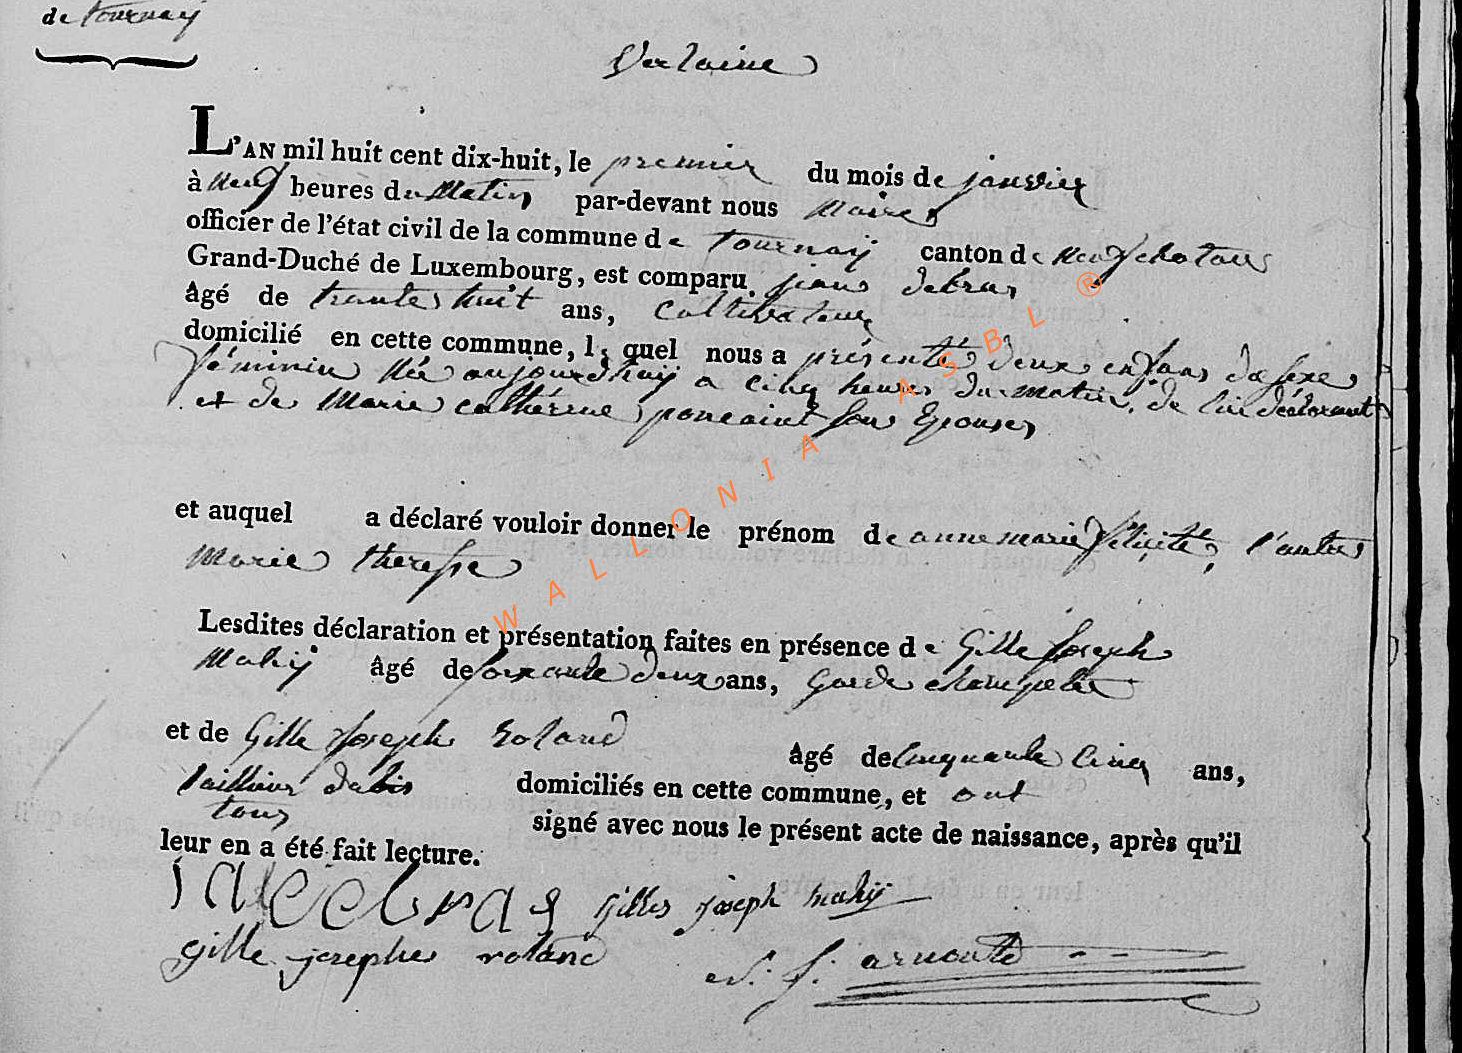 de tournay
Verlaine
L'AN mil huit cent dix-huit, le premier du mois de janvier
à neuf heures du Matin par-devant nous Maire
officier de l'état civil de la commune de tournay canton de neufchatau
Grand-Duché de Luxembourg, est comparu jean debras
âgé de trente huit ans, Cultivateur
domicilié en cette commune, lequel nous a présenté deux enfans de sexe
féminin née aujourdhuy a cinq heures du matin, de lui déclarant
et de Marie cathérine ponçaint son Epouse
et auquel a déclaré vouloir donner le prénom de anne marie félicité, l'autre
Marie theresse
Lesdites déclaration et présentation faites en présence de Gille Joseph
Mahy âgé de soixante deux ans, Garde champetre
et de Gille Joseph Roland âgé de Cinquante Cinq ans,
tailleur dabis domiciliés en cette commune, et ont
tous signé avec nous le présent acte de naissance, après qu'il
leur en a été fait lecture.
j a debras gilles joseph mahy
gille josephe roland
J. arnould
WALLONIA ASBL ®